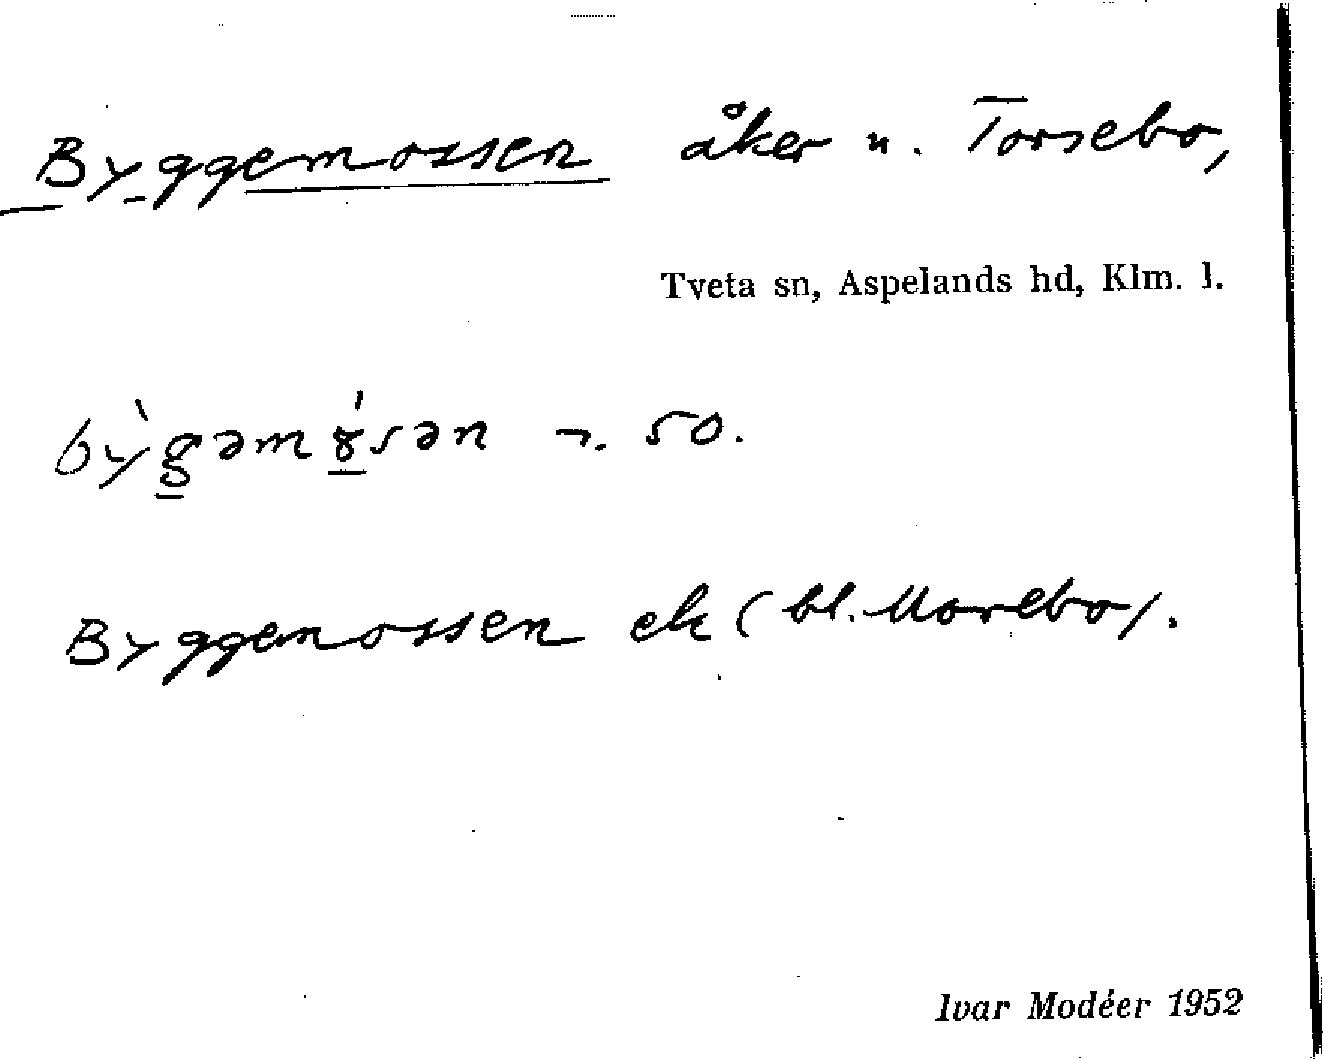 Byggemossen åker n. Torsebo,
Tveta sn, Aspelands hd, Klm. l.
bỳgəmɤ́sən ¬. 50.
Byggemossen ek (bl. Morebo).
Ivar Modéer 1952